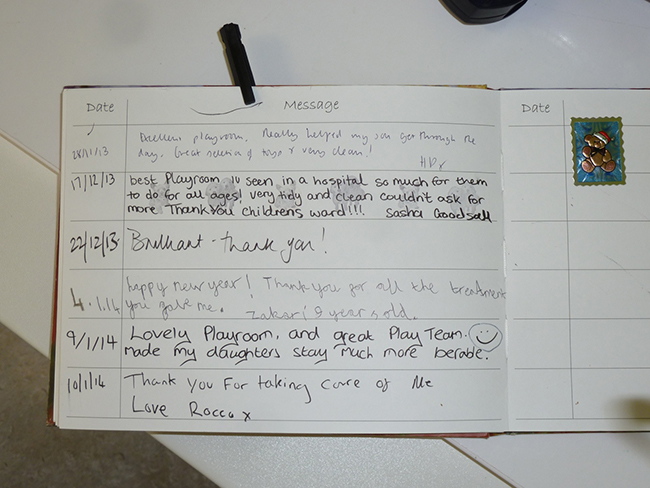 Date Message Date
Excellent playroom. Really helped my son get through the
28/11/13 day. Great selection of toys & very clean!
17/12/13 best Playroom iv seen in a hospital so much for them
to do for all ages! very tidy and clean couldn't ask for
more Thank You childrens ward!!!! Sasha Goodsall
22/12/13 Brilliant - thank you!
happy new year! Thank you for all the treatment
4.1.14 you gave me. Zakari 9 years old.
9/1/14 Lovely Playroom, and great Play Team.
made my daughters stay much more berable.
10/1/14 Thank You For taking care of Me
Love Rocco x